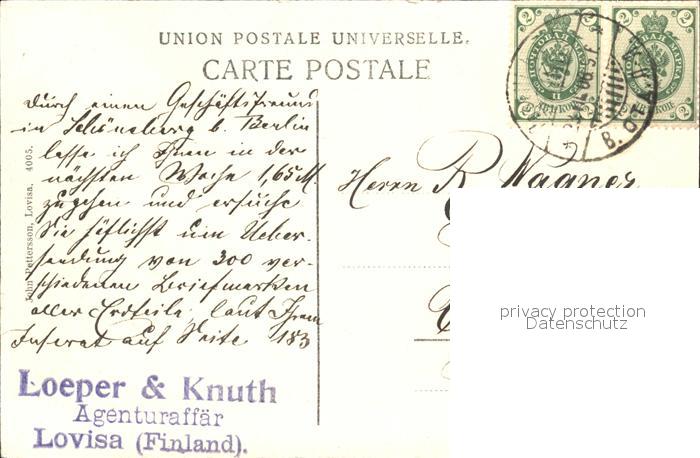 UNION POSTALE UNIVERSELLE.
CARTE POSTALE
durch einen Geschäftsfreund
in Schöneberg b. Berlin
lasse ich Ihnen in der
nächsten Woche 1,65 M.
zugehen und ersuche
Sie höflichst um Ueber-
sendung von 300 ver-
schiedenen Briefmarken
aller Erdteile laut Ihrem
Inserat auf Seite 183
Herrn R. Wagner
John Pettersson, Lovisa. 4005.
Loeper & Knuth
Agenturaffär
Lovisa (Finland).
2 2
2 2
ПОЧТОВАЯ МАРКА
ДВѢ КОП.
privacy protection
Datenschutz